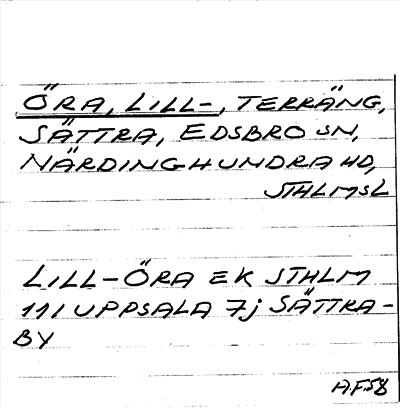 ÖRA, LILL-, TERRÄNG,
SÄTTRA, EDSBRO SN,
NÄRDINGHUNDRA HD,
STHLMSL
LILL-ÖRA EK STHLM
111 UPPSALA 7j SÄTTRA-
BY
A.F.58